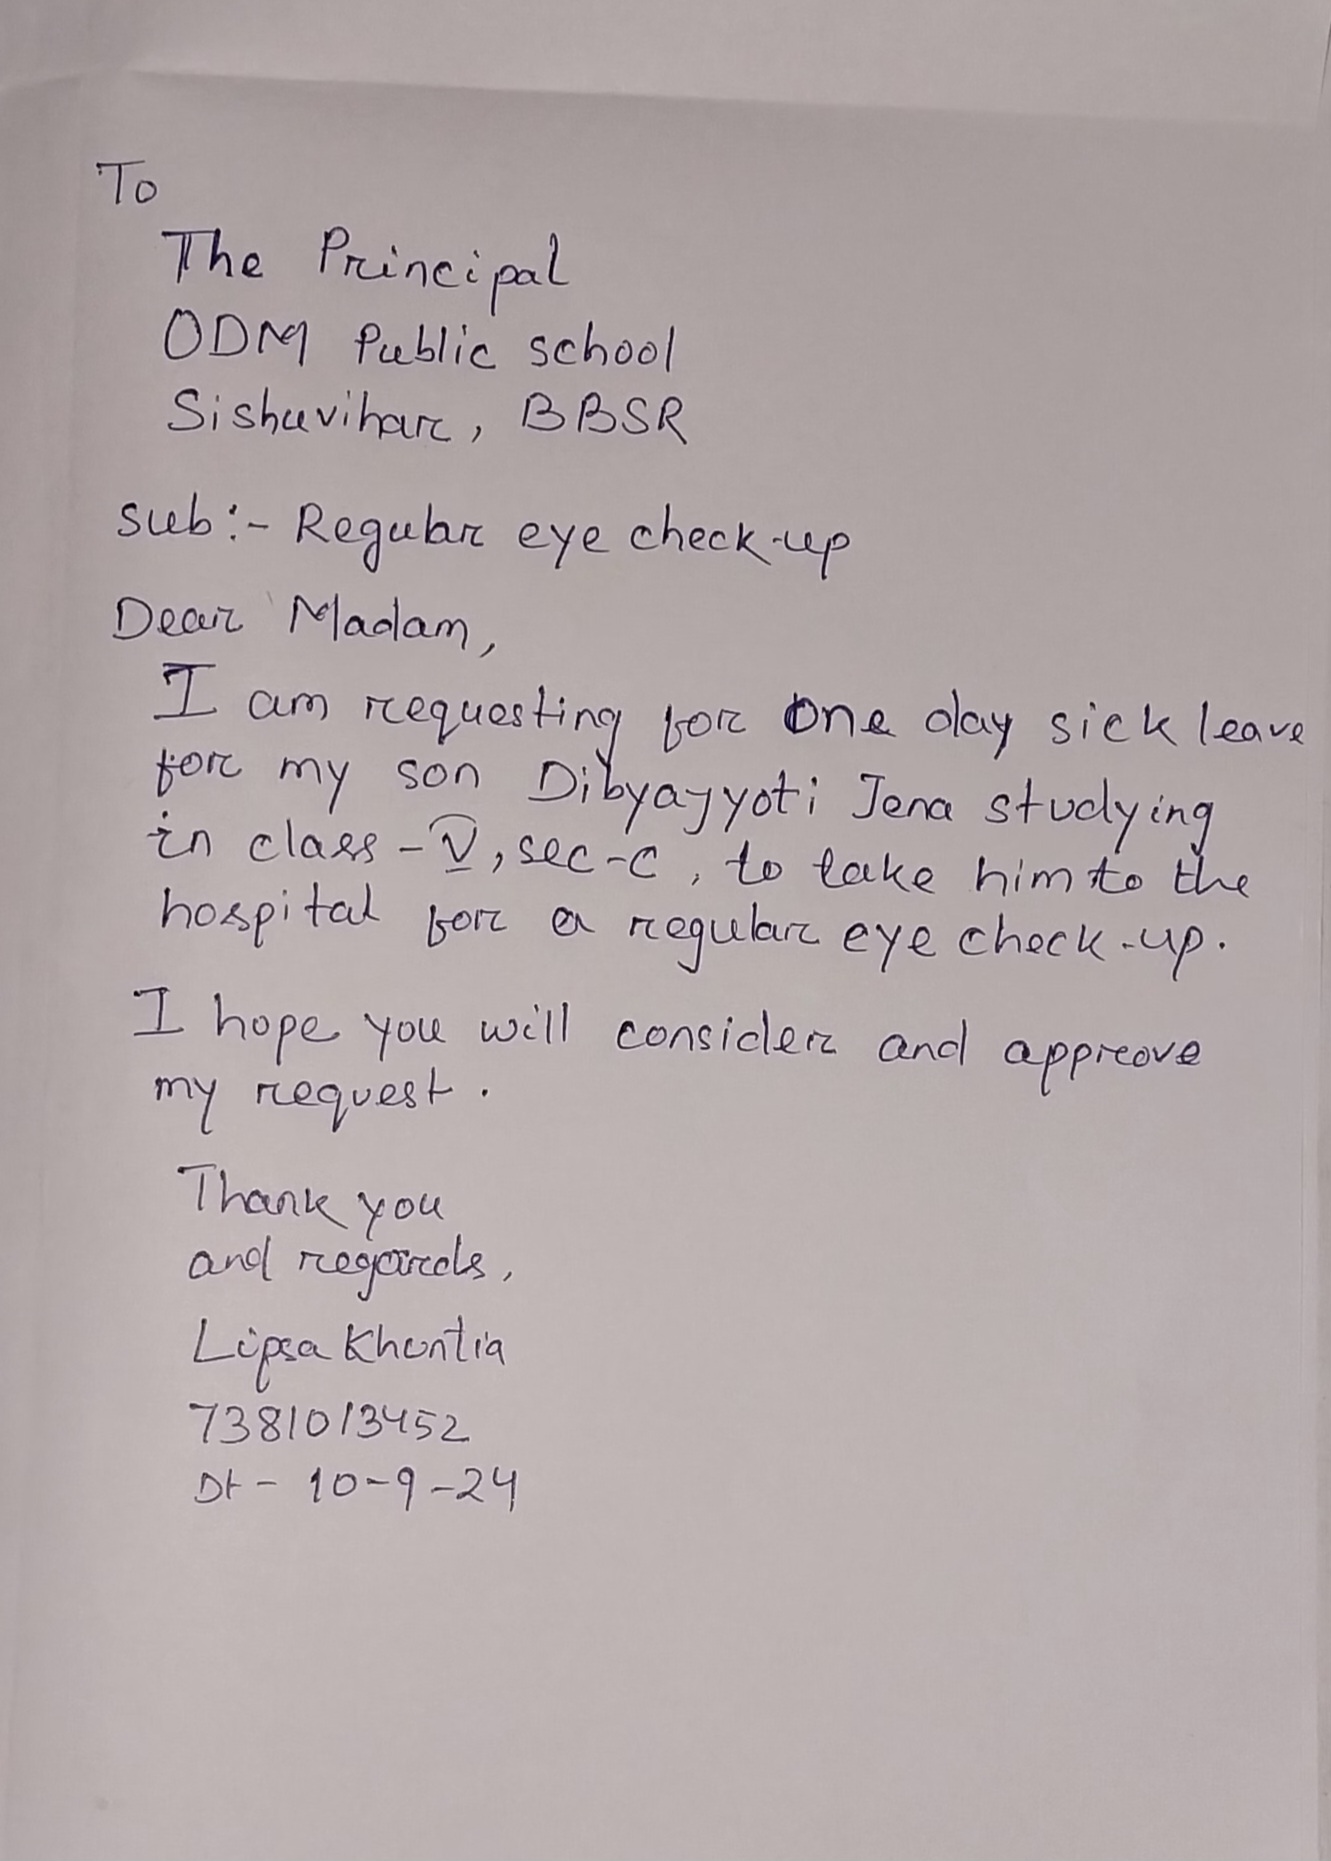 To
The Principal
ODM Public school
Sishuvihar, BBSR
sub:- Regular eye check-up
Dear Madam,
I am requesting for one day sick leave
for my son Dibyajyoti Jena studying
in class - V, sec-C, to take him to the
hospital for a regular eye check-up.
I hope you will consider and approve
my request.
Thank you
and regards,
Lipsa Khuntia
7381013452
Dt - 10-9-24